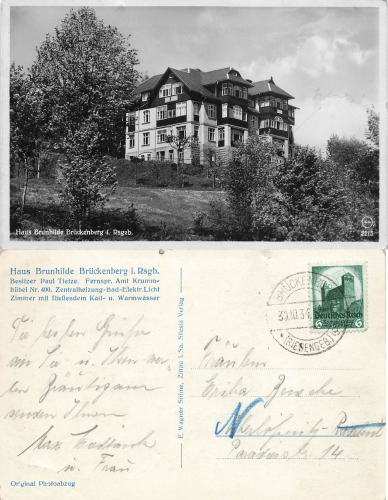 Haus Brunhilde Brückenberg i. Rsgb.
2213
Haus Brunhilde Brückenberg i. Rsgb.
Besitzer Paul Tietze. Fernspr. Amt Krumm-
hübel Nr. 400. Zentralheizung-Bad-Elektr. Licht
Zimmer mit fließendem Kalt- u. Warmwasser
Die besten Grüße
an Sie u. Ihren
Bräutigam
senden Ihnen
Max
u. Frau
Original Photoabzug
E. Wagner Söhne, Zittau i. Sa. Silesia Verlag
BRÜCKENBERG
30.10.3
(RIESENGEB.)
Deutsches Reich
6 6
Fräulein
Erika
Paradiesstr. 14